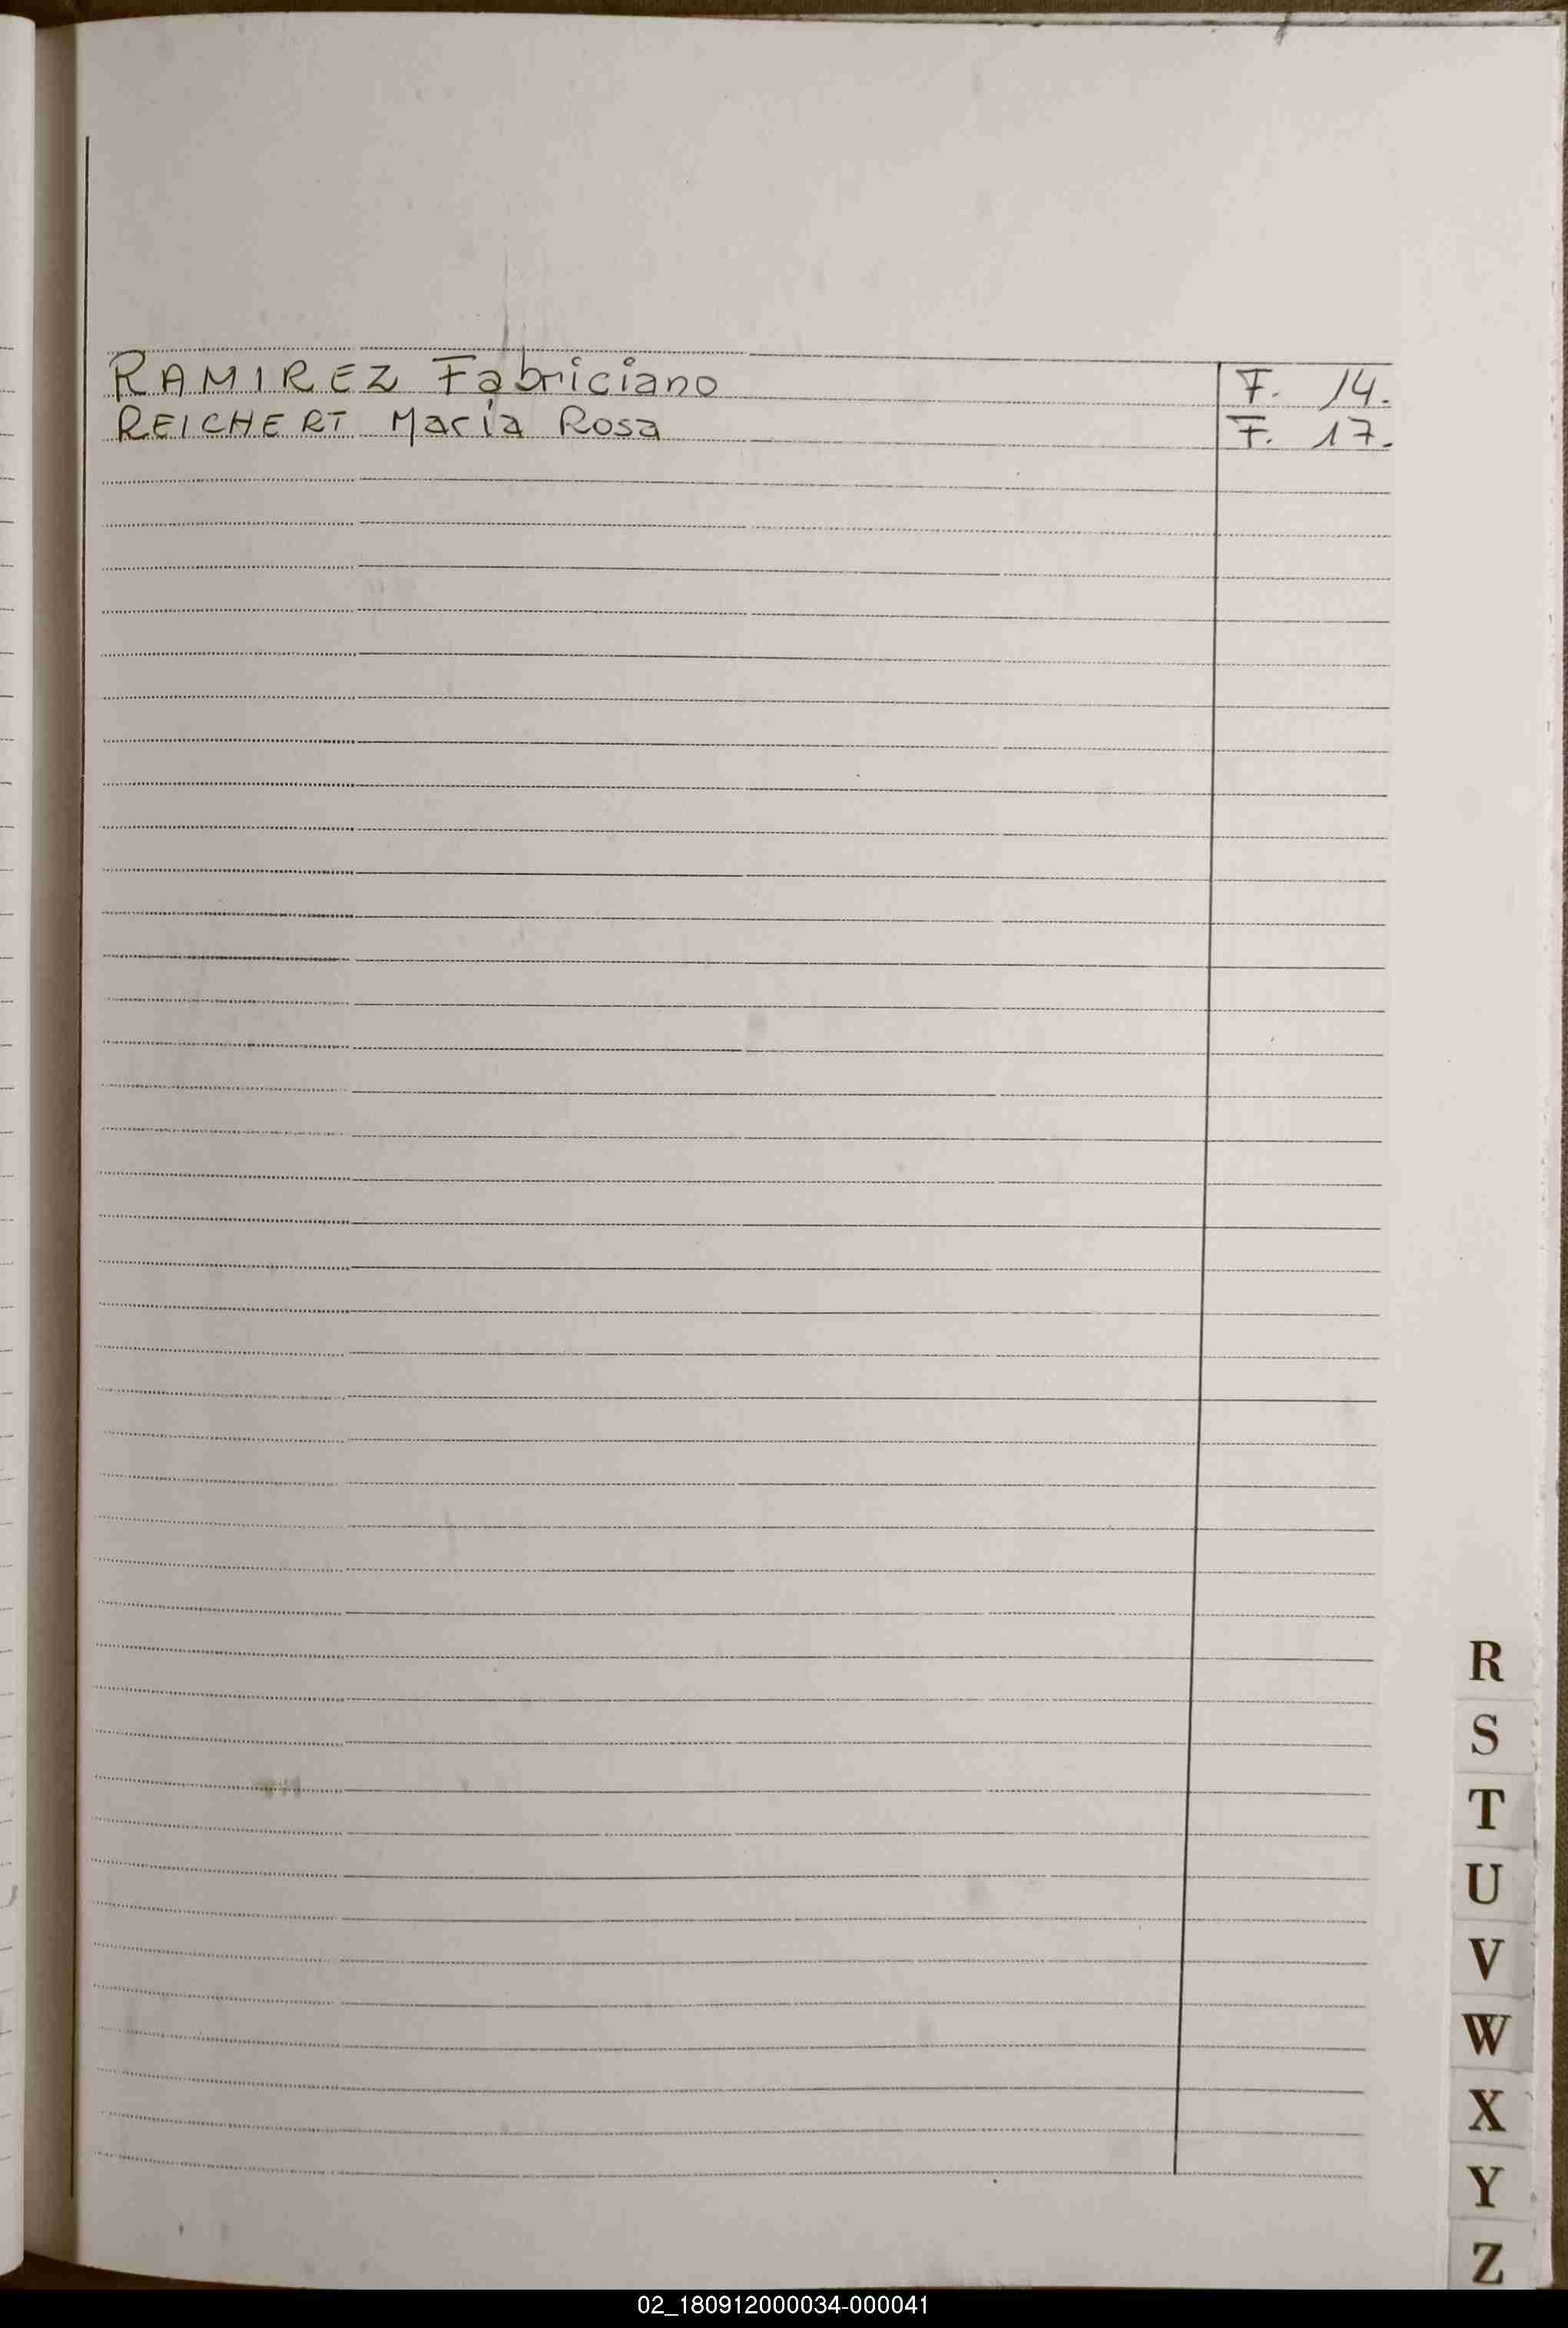 RAMIREZ Fabriciano F. 14.
REICHERT María Rosa F. 17.
R
S
T
U
V
W
X
Y
Z
02_180912000034-000041